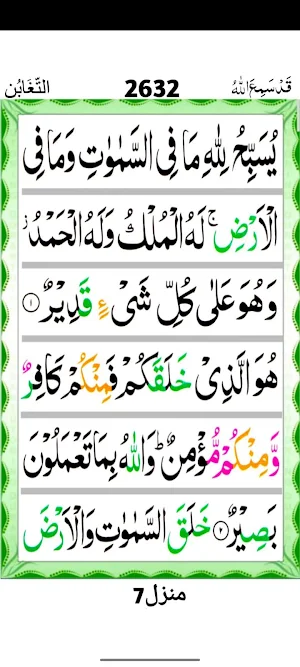 التّغَابُن 2632 قَدْ سَمِعَ اللّٰهُ
يُسَبِّحُ لِلّٰهِ مَا فِی السَّمٰوٰتِ وَمَا فِی
الْاَرْضِ ۚ لَهُ الْمُلْكُ وَلَهُ الْحَمْدُ ؗ
وَهُوَ عَلٰی كُلِّ شَیْءٍ قَدِیْرٌ ۝۱
هُوَ الَّذِیْ خَلَقَكُمْ فَمِنْكُمْ كَافِرٌ
وَّمِنْكُمْ مُّؤْمِنٌ ؕ وَاللّٰهُ بِمَا تَعْمَلُوْنَ
بَصِیْرٌ ۝۲ خَلَقَ السَّمٰوٰتِ وَالْاَرْضَ
منزل7